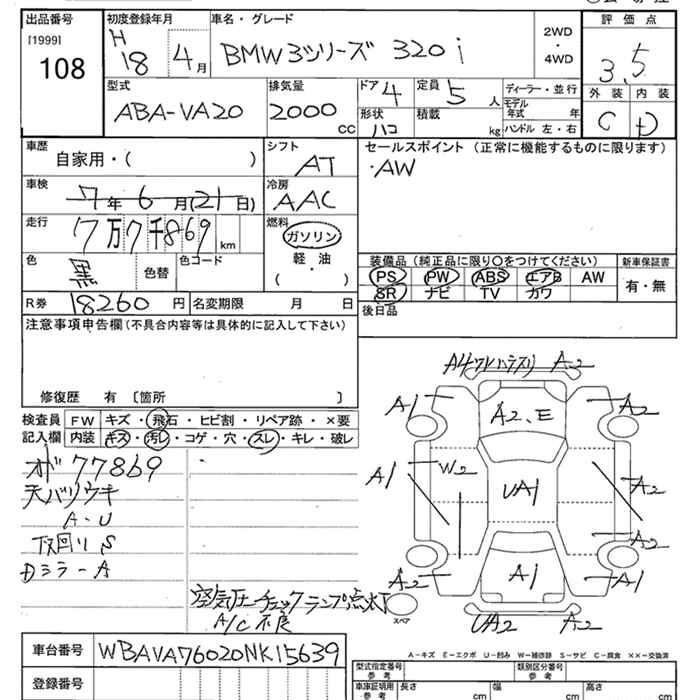 出品番号 初度登録年月 車名・グレード 2WD・4WD 評価点
[1999]
108
H 18 4月 BMW3シリーズ 320i 3.5
型式 排気量 ドア4 定員 5人 ディーラー・並行 外装 内装
ABA-VA20 2000cc モデル年式 年 C D
形状 ハコ 積載 kg ハンドル 左・右
車歴 自家用・( ) シフト AT セールスポイント(正常に機能するものに限ります)
・AW
車検 7年6月(21日) 冷房 AAC
走行 7万7千869km 燃料 ガソリン
軽・油
( )
色 黒 色替 色コード
装備品(純正品に限り○をつけてください) 新車保証書
PS PW ABS エアB AW 有・無
SR ナビ TV カワ
R券 18260円 名変期限 月 日 後日品
注意事項申告欄(不具合内容等は具体的に記入して下さい)
修復歴 有 〔箇所 〕
検査員 FW キズ・飛石・ヒビ割・リペア跡・×要
記入欄 内装 キズ・汚レ・コゲ・穴・スレ・キレ・破レ
オド 77869
天バリウキ
A・U
下回りS
Dミラ-A
空気圧チェックランプ点灯
A/C不良
A2
A1 A2.E A2
A1 W2 UA1 A2
A2
A2 A1 A1
スペア UA2 A2
車台番号 WBAVA76020NK15639
登録番号
A-キズ E-エクボ U-凹み W-補修跡 S-サビ C-腐食 ××-交換済
型式指定番号 参考 類別区分番号 参考
車庫証明用 参考 長さ cm 幅 cm 高さ cm